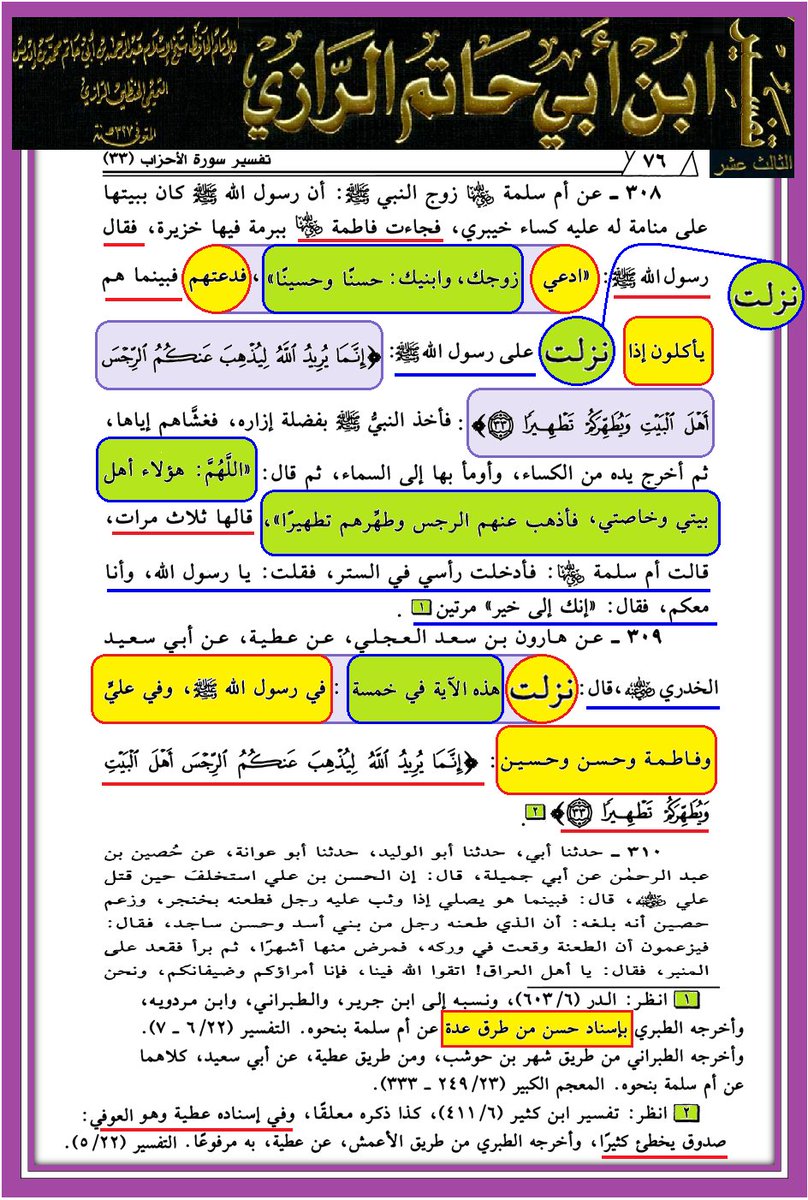 تفسير ابن أبي حاتم الرازي
للإمام الحافظ شيخ الإسلام عبد الرحمن بن أبي حاتم محمد بن إدريس
التميمي الحنظلي الرازي
المتوفى ٣٢٧ هـ سنة
الثالث عشر
٧٦
تفسير سورة الأحزاب (٣٣)
٣٠٨ ـ عن أم سلمة رضي الله عنها زوج النبي ﷺ: أن رسول الله ﷺ كان ببيتها
على منامة له عليه كساء خيبري، فجاءت فاطمة رضي الله عنها ببرمة فيها خزيرة، فقال
رسول الله ﷺ: «ادعي زوجك، وابنيك: حسنًا وحسينًا»، فدعتهم فبينما هم
نزلت
يأكلون إذا نزلت على رسول الله ﷺ: ﴿إِنَّمَا يُرِيدُ اللَّهُ لِيُذْهِبَ عَنكُمُ الرِّجْسَ
أَهْلَ الْبَيْتِ وَيُطَهِّرَكُمْ تَطْهِيرًا ٣٣﴾: فأخذ النبيُّ ﷺ بفضلة إزاره، فغشَّاهم إياها،
ثم أخرج يده من الكساء، وأومأ بها إلى السماء، ثم قال: «اللَّهُمَّ: هؤلاء أهل
بيتي وخاصتي، فأذهب عنهم الرجس وطهِّرهم تطهيرًا»، قالها ثلاث مرات،
قالت أم سلمة رضي الله عنها: فأدخلت رأسي في الستر، فقلت: يا رسول الله، وأنا
معكم، فقال: «إنك إلى خير» مرتين ١ .
٣٠٩ ـ عن هارون بن سعد العجلي، عن عطية، عن أبي سعيد
الخدري رضي الله عنه، قال: نزلت هذه الآية في خمسة: في رسول الله ﷺ، وفي عليٍّ
وفاطمة وحسن وحسين: ﴿إِنَّمَا يُرِيدُ اللَّهُ لِيُذْهِبَ عَنكُمُ الرِّجْسَ أَهْلَ الْبَيْتِ
وَيُطَهِّرَكُمْ تَطْهِيرًا ٣٣﴾ ٢ .
٣١٠ ـ حدثنا أبي، حدثنا أبو الوليد، حدثنا أبو عوانة، عن حُصين بن
عبد الرحمٰن عن أبي جميلة، قال: إن الحسن بن علي استخلفَ حين قتل
علي رضي الله عنه، قال: فبينما هو يصلي إذا وثب عليه رجل فطعنه بخنجر، وزعم
حصين أنه بلغه: أن الذي طعنه رجل من بني أسد وحسن ساجد، فقال:
فيزعمون أن الطعنة وقعت في وركه، فمرض منها أشهرًا، ثم برأ فقعد على
المنبر، فقال: يا أهل العراق! اتقوا الله فينا، فإنا أمراؤكم وضيفانكم، ونحن
١ انظر: الدر (٦/٦٠٣)، ونسبه إلى ابن جرير، والطبراني، وابن مردويه،
وأخرجه الطبري بإسناد حسن من طرق عدة عن أم سلمة بنحوه. التفسير (٦/٢٢ ـ ٧).
وأخرجه الطبراني من طريق شهر بن حوشب، ومن طريق عطية، عن أبي سعيد، كلاهما
عن أم سلمة بنحوه. المعجم الكبير (٢٤٩/٢٣ ـ ٣٣٣).
٢ انظر: تفسير ابن كثير (٤١١/٦)، كذا ذكره معلقًا، وفي إسناده عطية وهو العوفي:
صدوق يخطئ كثيرًا، وأخرجه الطبري من طريق الأعمش، عن عطية، به مرفوعًا. التفسير (٥/٢٢).